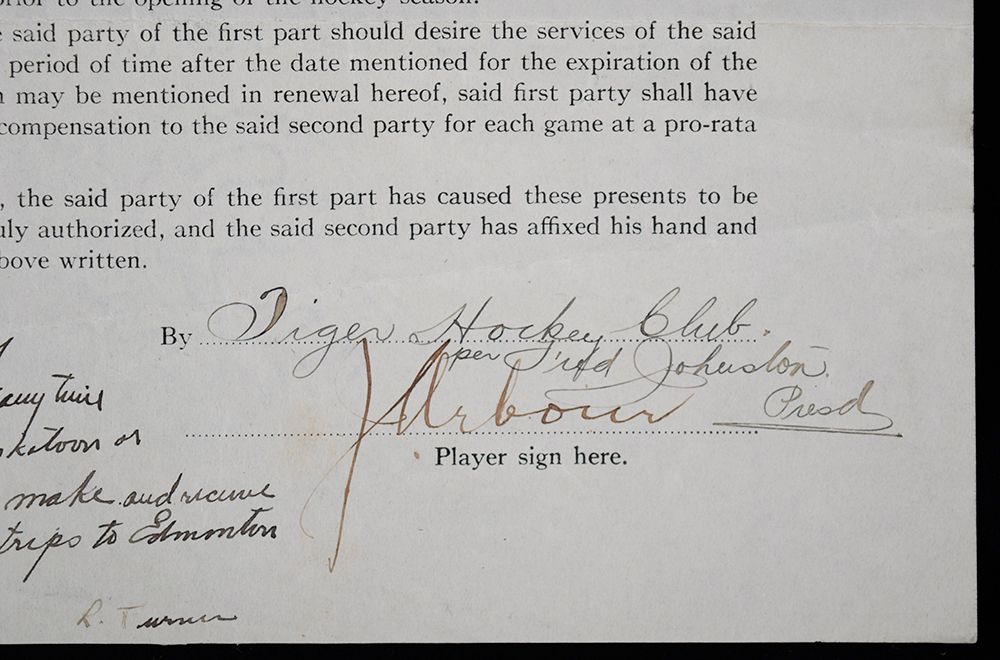 prior to the opening of the hockey season.
said party of the first part should desire the services of the said
period of time after the date mentioned for the expiration of the
may be mentioned in renewal hereof, said first party shall have
compensation to the said second party for each game at a pro-rata
, the said party of the first part has caused these presents to be
uly authorized, and the said second party has affixed his hand and
bove written.
By Tiger Hockey Club.
per Fred Johnston.
Presd
J Arbour
Player sign here.
any time
katoon or
make and receive
trips to Edmonton
R. Turner